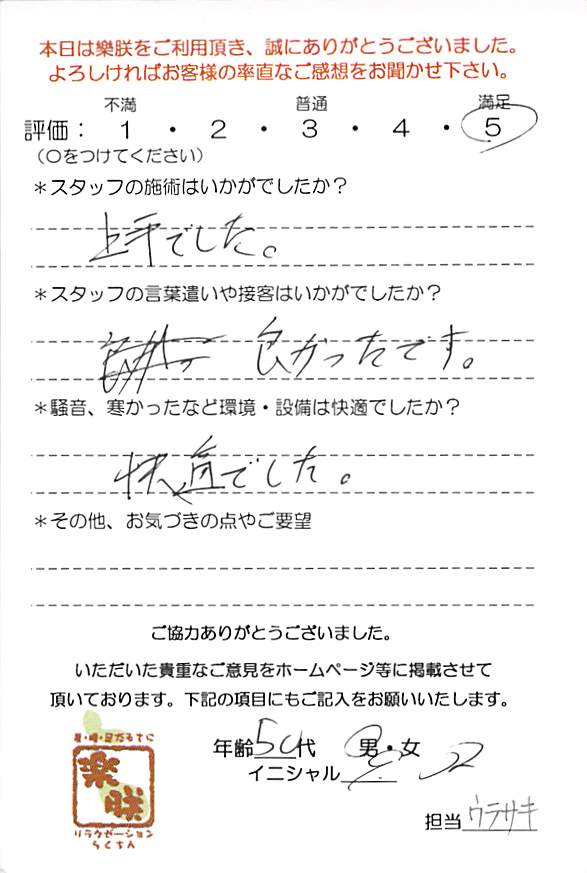 本日は樂朕をご利用頂き、誠にありがとうございました。
よろしければお客様の率直なご感想をお聞かせ下さい。
不満 普通 満足
評価： 1 ・ 2 ・ 3 ・ 4 ・ 5
（〇をつけてください）
＊スタッフの施術はいかがでしたか？
上手でした。
＊スタッフの言葉遣いや接客はいかがでしたか？
良かったです。
＊騒音、寒かったなど環境・設備は快適でしたか？
快適でした。
＊その他、お気づきの点やご要望
ご協力ありがとうございました。
いただいた貴重なご意見をホームページ等に掲載させて
頂いております。下記の項目にもご記入をお願いいたします。
年齢50代 男・女
イニシャル
担当ウラサキ
樂朕
リラクゼーション
らくちん